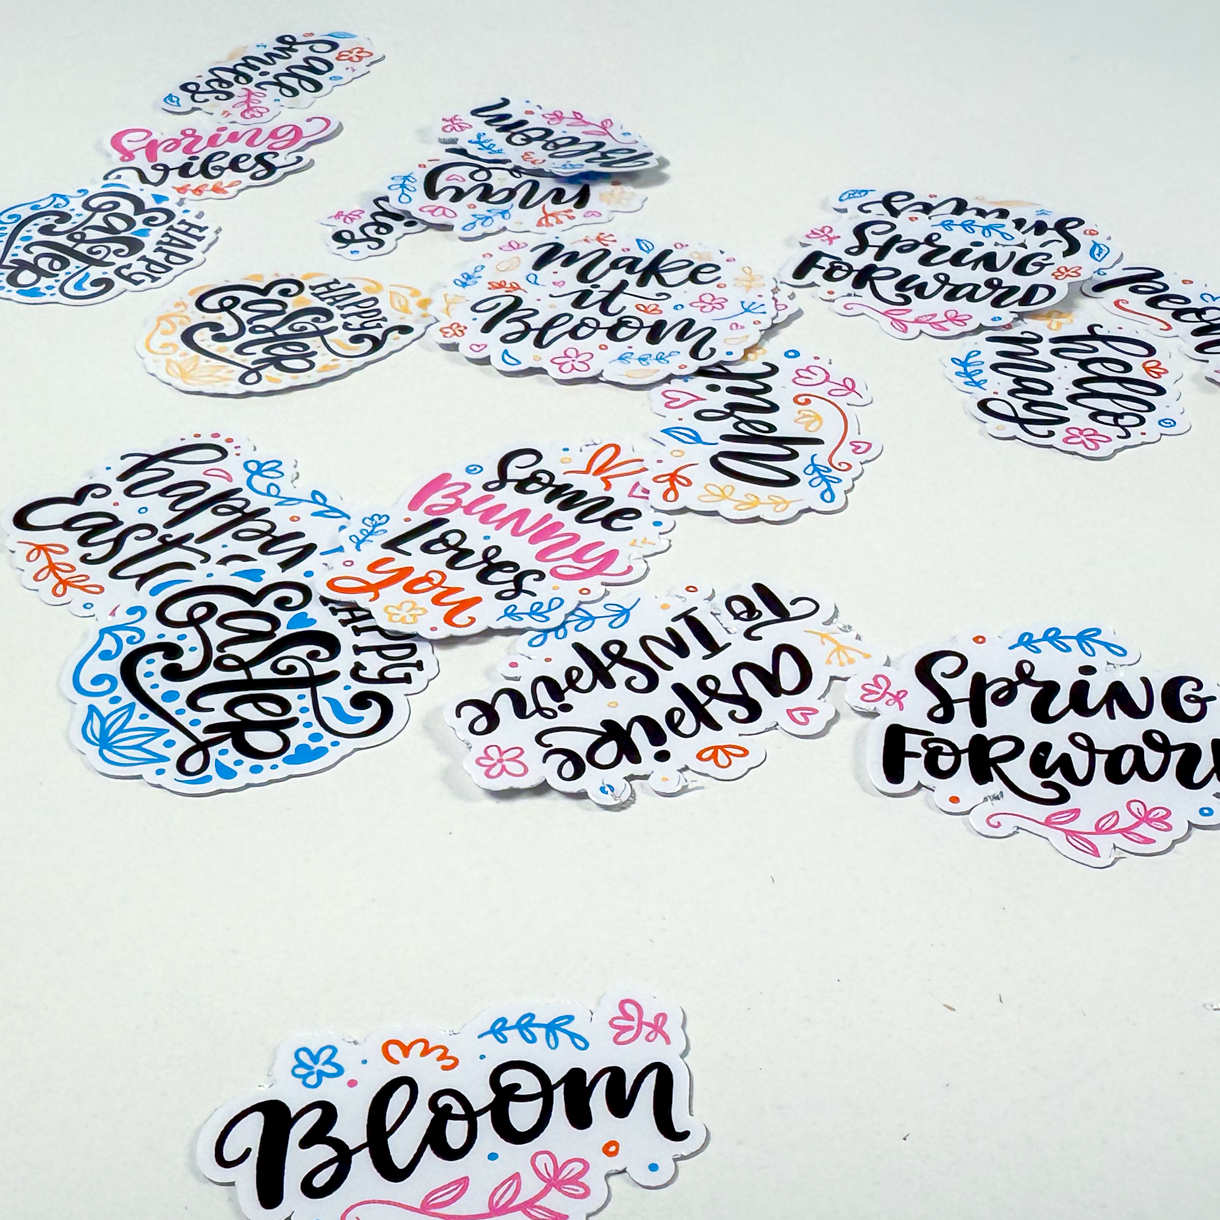 Sale
Smiles
Spring
vibes
HAPPY
Easter
Bloom
May
HAPPY
Easter
Make
it
Bloom
Spring
Forward
hello
may
happy
Easter
HAPPY
Easter
Some
Bunny
Loves
you
aspire
To Inspire
Spring
Forward
Bloom